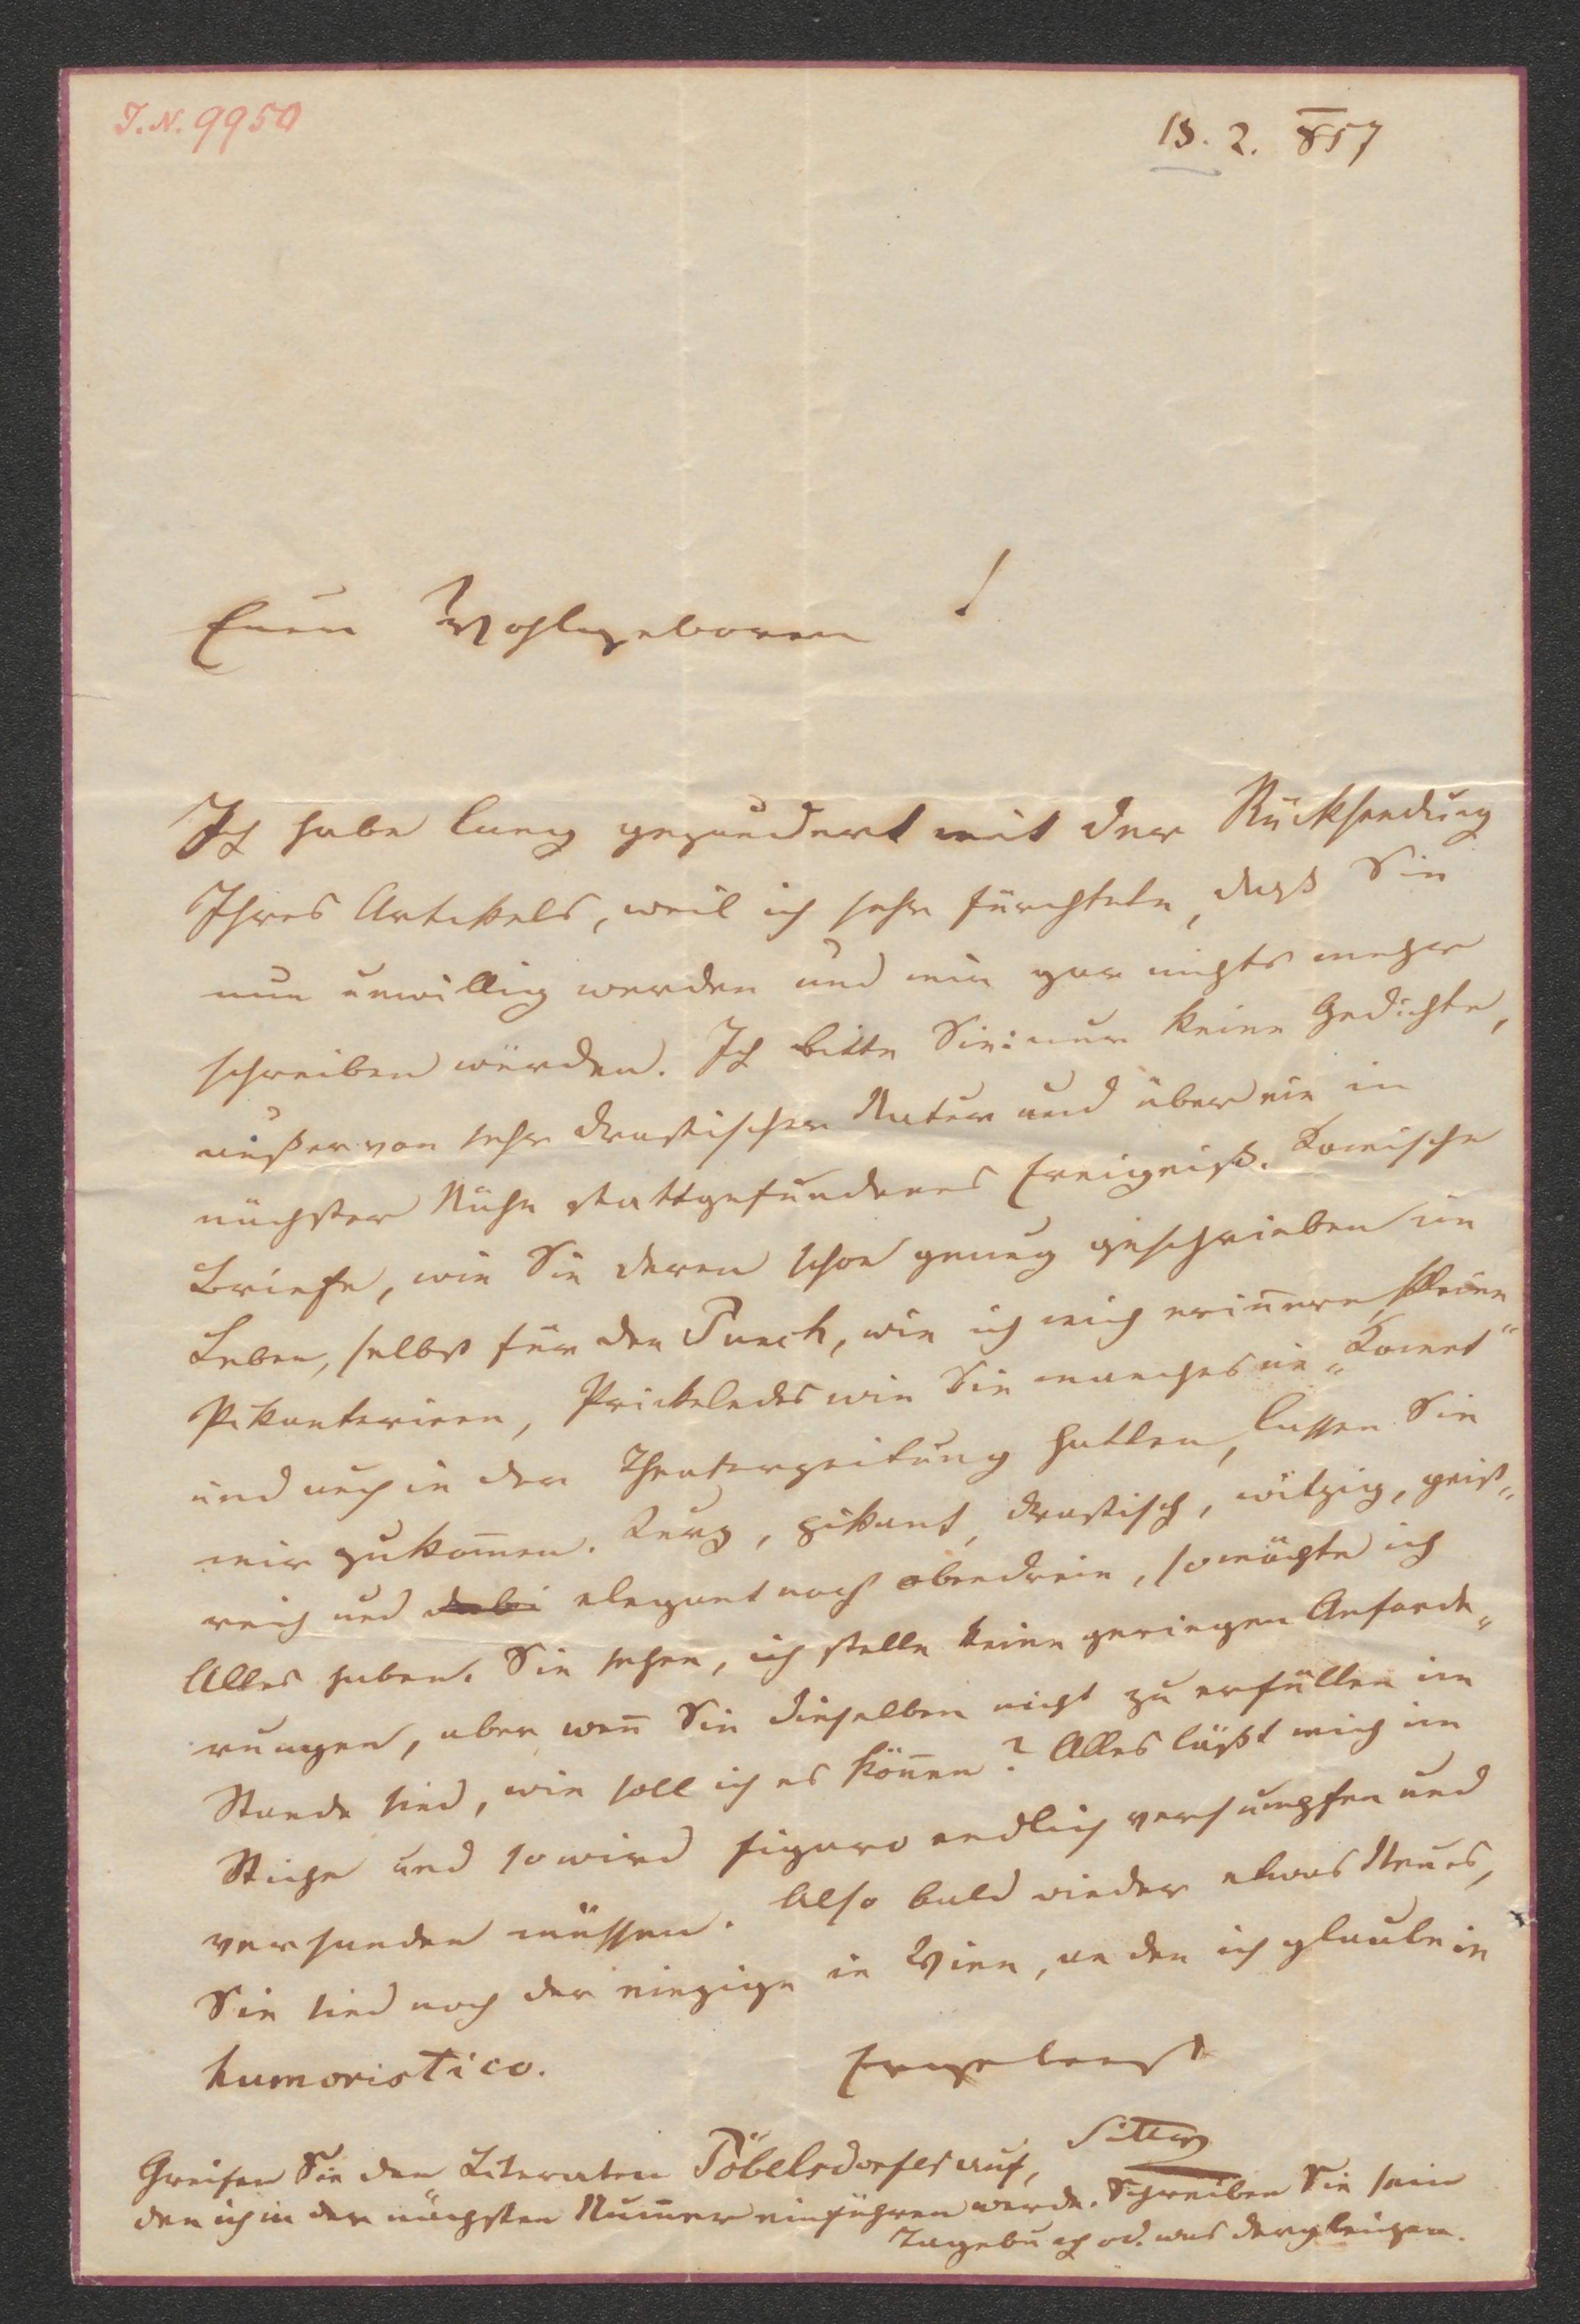 I. N. 9950
13. 2. 857
Euer Wohlgeboren !
Ich habe lang gezaudert mit der Rücksendung
Ihres Artikels, weil ich sehr fürchtete, daß Sie
nun unwillig werden und mir gar nichts mehr
schreiben würden. Ich bitte Sie: nur keine Gedichte,
außer von sehr drastischer Natur und über ein in
nächster Nähe stattgefundenes Ereigniß. Komische
Briefe, wie Sie deren schon genug geschrieben im
Leben, selbst für den Punch, wie ich mich erin̄ere, kleine
Pikanterieen, Prickelndes wie Sie manches im „Komet“
und auch in der Theaterzeitung hatten, lassen Sie
mir zukom̄en. Kurz, pikant, drastisch, witzig, geist„
reich und dabei elegant noch obendrein, so möchte ich
Alles haben. Sie sehen, ich stelle keine geringen Anforde„
rungen, aber wen̄ Sie dieselben nicht zu erfüllen im
Stande sind, wie soll ich es kön̄en? Alles läßt mich im
Stiche und so wird Figaro endlich versumpfen und
versanden müssen. Also bald wieder etwas Neues,
Sie sind noch der einzige in Wien, an den ich glaube in
humoristico.
Ergebenst
Sitter
Greifen Sie den Literaten Pöbelsdorfer auf,
den ich in der nächsten Num̄er einführen werde. Schreiben Sie sein
Tagebuch od. was dergleichen.